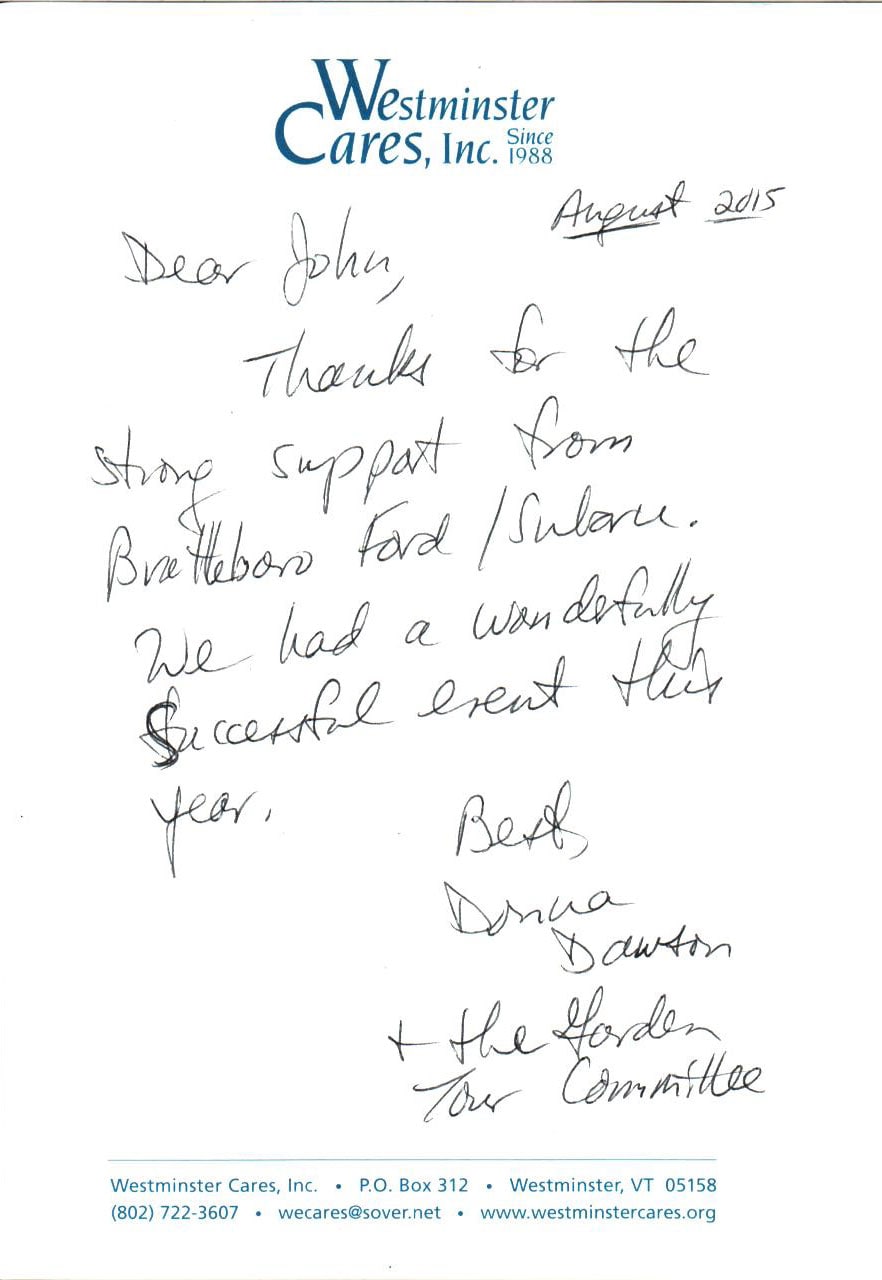 Westminster
Cares, Inc. Since 1988
August 2015
Dear John,
Thanks for the
strong support from
Brattleboro Ford / Subaru.
We had a wonderfully
successful event this
year.
Best,
Donna
Dawson
+ the Garden
Tour Committee
Westminster Cares, Inc. • P.O. Box 312 • Westminster, VT 05158
(802) 722-3607 • wecares@sover.net • www.westminstercares.org